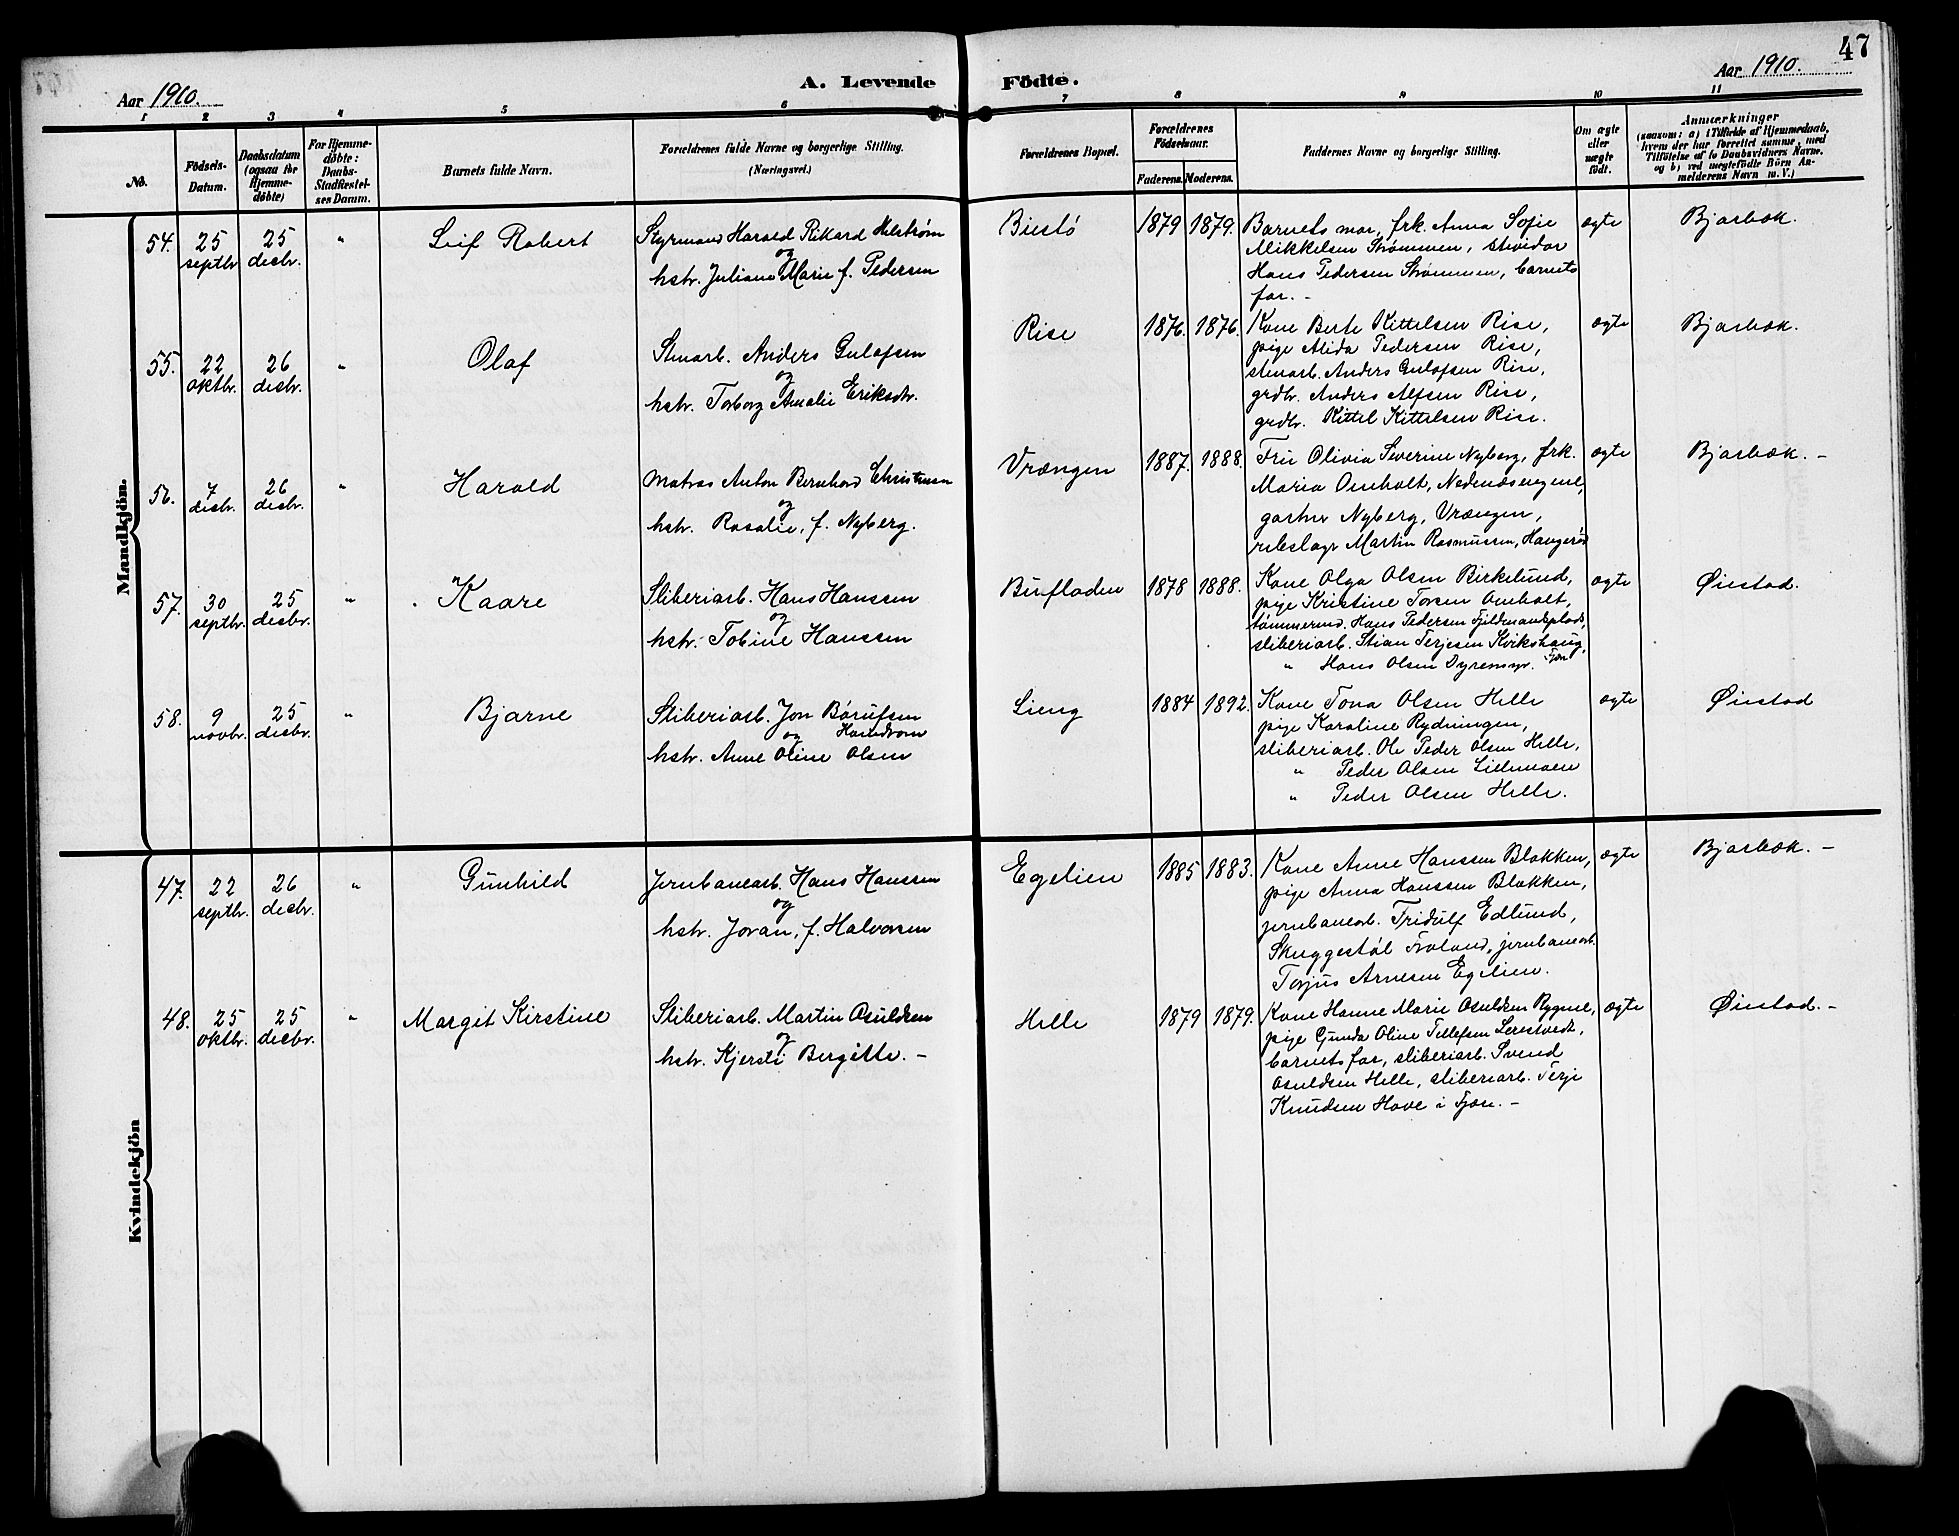 47
Aar 1910.
A. Levende Födte.
Aar 1910.
1 2 3 4 5 6 7 8 9 10 11
No.
Födsels-
Datum.
Daabsdatum
(ogsaa for
Hjemme-
döbte)
For Hjemme-
döbte:
Daabs-
Stadfæstel-
ses Datum.
Barnets fulde Navn.
Forældrenes fulde Navne og borgerlige Stilling.
(Næringsvei.)
Forældrenes Bopæl.
Forældrenes
Födselsaar.
Faderens. Moderens.
Faddernes Navne og borgerlige Stilling.
Om ægte
eller
uægte
födt.
Anmærkninger
(saasom: a) i Tilfælde af Hjemmedaab,
hvem der har forrettet samme, med
Tilföielse af to Daabsvidners Navne,
og b) ved uegtefödte Börn An-
melderens Navn m. V.)
Mandkjön.
54. 25 septbr. 25 desbr. " Leif Robert
Styrmand Harald Rikard Helstrøm
og
hstr. Juliane Marie f. Pedersen
Biestø 1879 1879.
Barnets mor, frk. Anna Sofie
Mikkelsen Strømmen, stuidar
Hans Pedersen Strømmen, barnets
far. -
ægte Bjorbæk.
55. 22 oktbr. 26 desbr. " Olaf
Stenarb. Anders Gulafsen
og
hstr. Torborg Amalie Eriksdtr.
Rise 1876. 1876.
Kone Berte Kittelsen Rise,
pige Alida Pedersen Rise,
stenarb. Anders Gulafsen Rise,
grdbr. Anders Alfsen Rise,
grdbr. Kittel Kittelsen Rise.
ægte Bjorbæk.
56. 7 desbr. 26 desbr. " Harald
Matros Anton Bernhard Christensen
og
hstr. Rosalie, f. Nyberg.
Vrængen 1887. 1888.
Fru Olivia Severine Nyborg, frk.
Maria Omholt, Nedenæsengene,
gartner Nyberg, Vrængen,
rebslagr Martin Rasmussen, Haugerød
ægte Bjorbæk. -
57. 30 septbr. 25 desbr. " Kaare
Sliberiarb. Hans Hanssen
og
hstr. Tobine Hanssen
Biefloden 1878 1888.
Kone Olga Olsen Birkelund,
pige Kristine Torsen Omholt,
tømmermd. Hans Pedersen
sliberiarb. Stian Terjesen Kvikshaug,
" Hans Olsen Dyremyr.
ægte Øiestad.
58. 9 novbr. 25 desbr. " Bjarne
Sliberiarb. Jon Børufsen
og
hstr. Anne Oline Olsen
Lieng 1884 1892.
Kone Tona Olsen Helle
pige Karoline Rydningen,
sliberiarb. Ole Peder Olsen Helle,
" Peder Olsen Lielmoen
" Peder Olsen Helle.
ægte Øiestad
Kvindekjön
47. 22 septbr. 26 desbr. " Gunhild
Jernbanearb. Hans Hanssen
og
hstr. Joran, f. Halvorsen
Egelien 1885 1883.
Kone Anne Hanssen Blakken,
pige Anna Hanssen Blakken,
jernbanearb. Fridulf Edlund,
Skuggestøl Froland, jernbanearb.
Torjus Arnesen Egelien.
ægte Bjorbæk. -
48. 25 oktbr. 25 desbr. " Margit Kirstine
Sliberiarb. Martin Osuldsen
og
hstr. Kjersti Birgitte. -
Helle 1879 1879.
Kone Hanne Marie Osuldsen Rygene,
pige Gunda Oline Tellefsen Lerestvedt,
barnets far, sliberiarb. Svend
Osuldsen Helle, sliberiarb. Terje
Knudsen Hove i Fjære. -
ægte Øiestad. -